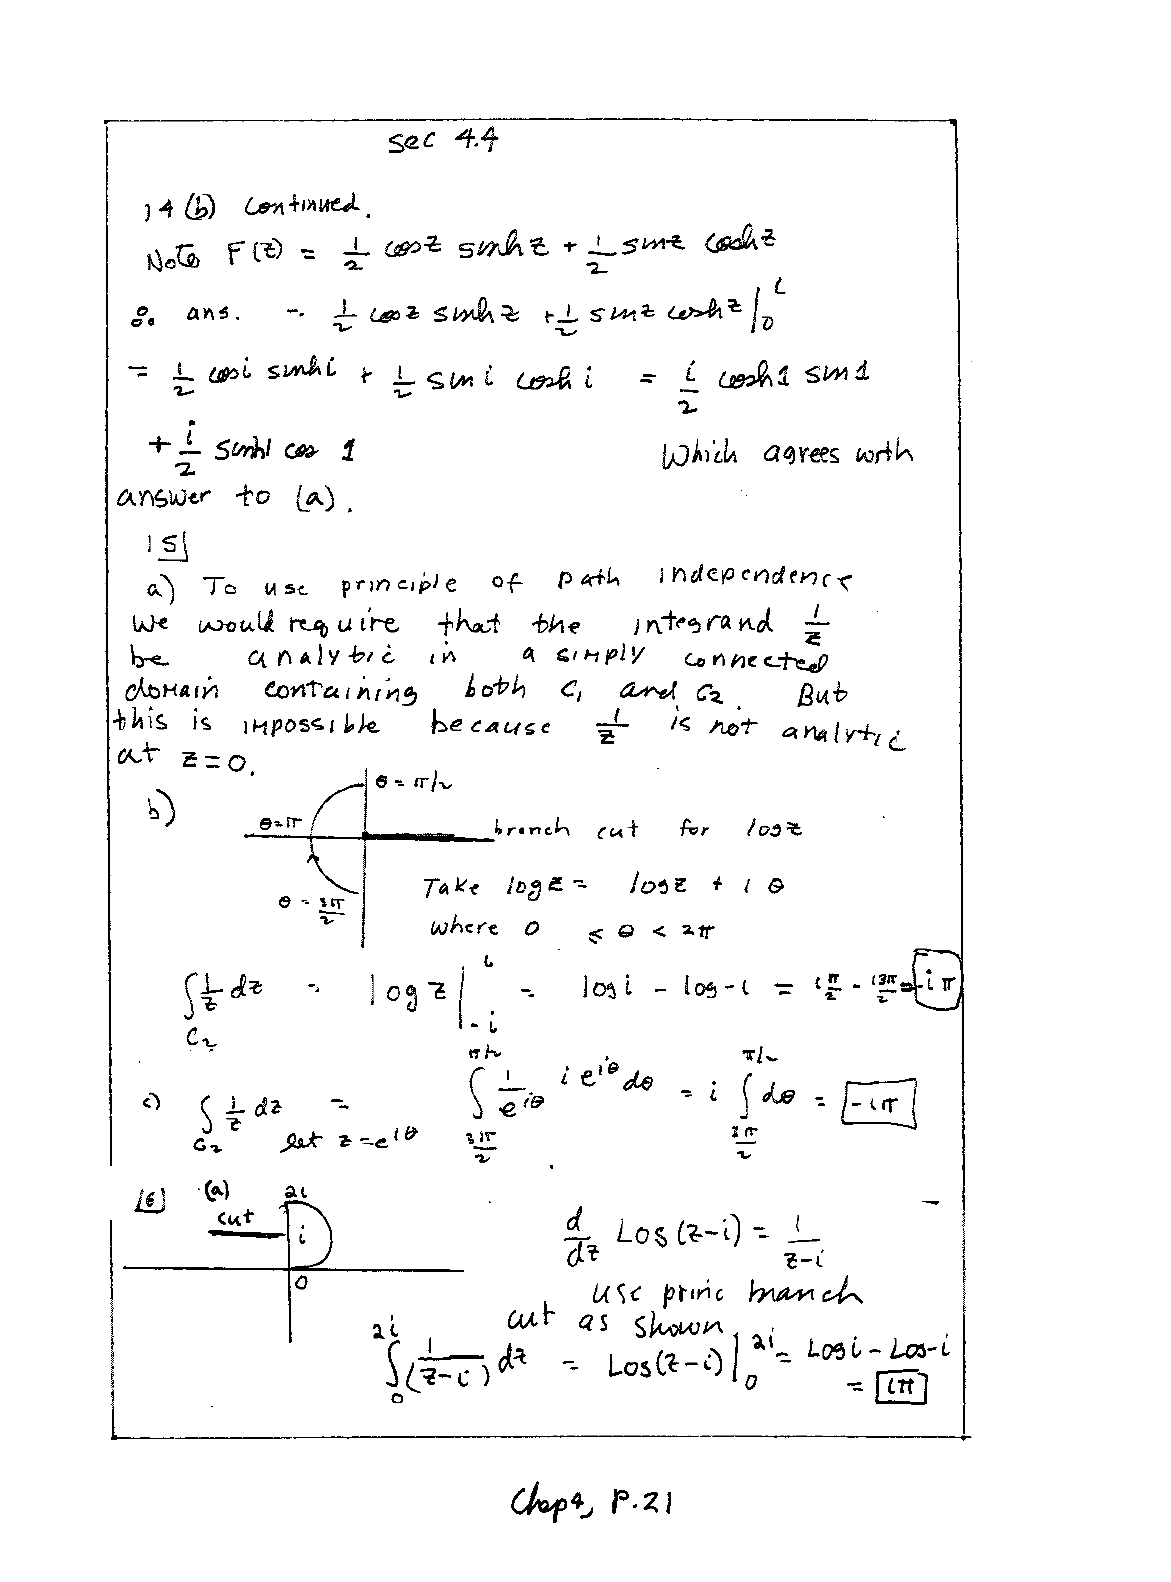 sec 4.4
14 (b) continued.
Note F(z) = 1/2 cos z sinh z + 1/2 sin z cosh z
∴ ans. = 1/2 cos z sinh z + 1/2 sin z cosh z |_0^i
= 1/2 cos i sinh i + 1/2 sin i cosh i = i/2 cosh 1 sin 1
+ i/2 sinh 1 cos 1 Which agrees with
answer to (a).
15
a) To use principle of path independence
we would require that the integrand 1/z
be analytic in a simply connected
domain containing both C₁ and C₂. But
this is impossible because 1/z is not analytic
at z=0.
b) θ = π/2
θ=π
branch cut for log z
θ = 3π/2
Take log z = log z + i θ
where 0 ≤ θ < 2π
∫_{C₂} 1/z dz = log z |_{-i}^{i} = log i - log -i = i π/2 - i3π/2 = -iπ
c) ∫_{C₂} 1/z dz = ∫_{3π/2}^{π/2} 1/e^{iθ} i e^{iθ} dθ = i ∫_{3π/2}^{π/2} dθ = -iπ
let z = e^{iθ}
16 (a) 2i
cut
i
0
d/dz Log(z-i) = 1/(z-i)
use princ branch
cut as shown.
∫_0^{2i} (1/(z-i)) dz = Log(z-i) |_0^{2i} = Log i - Log -i
= iπ
Chap 4, P.21